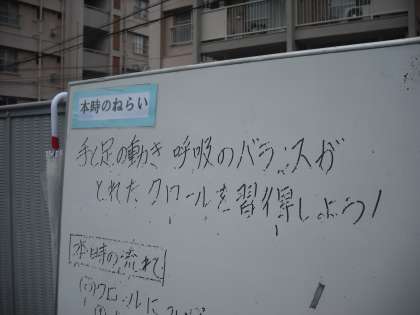 本時のねらい
手と足の動き 呼吸のバランスが
とれたクロールを習得しよう!
本時の流れ